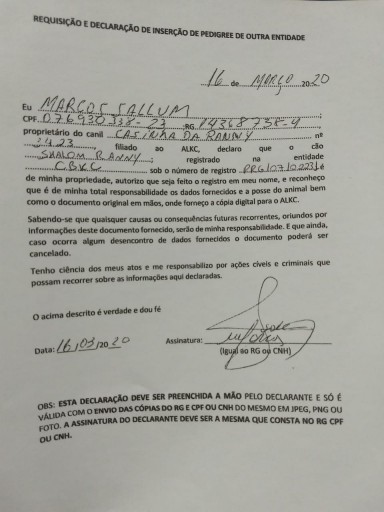 REQUISIÇÃO E DECLARAÇÃO DE INSERÇÃO DE PEDIGREE DE OUTRA ENTIDADE
16 de MARÇO 2020
Eu MARCOS SALLUM
CPF 076930338-23 RG 14368738-9
proprietário do canil CASINHA DA RANNY nº
2423, filiado ao ALKC, declaro que o cão
SHALOM RANNY, registrado na entidade
CBKC sob o número de registro
de minha propriedade, autorizo que seja feito o registro em meu nome, e reconheço
que é de minha total responsabilidade os dados fornecidos e a posse do animal bem
como o documento original em mãos, onde forneço a cópia digital para o ALKC.
Sabendo-se que quaisquer causas ou consequências futuras recorrentes, oriundos por
informações deste documento fornecido, serão de minha responsabilidade. E que ainda,
caso ocorra algum desencontro de dados fornecidos o documento poderá ser
cancelado.
Tenho ciência dos meus atos e me responsabilizo por ações cíveis e criminais que
possam recorrer sobre as informações aqui declaradas.
O acima descrito é verdade e dou fé
Data: 16/03/2020 Assinatura:
(Igual ao RG ou CNH)
OBS: ESTA DECLARAÇÃO DEVE SER PREENCHIDA A MÃO PELO DECLARANTE E SÓ É
VÁLIDA COM O ENVIO DAS CÓPIAS DO RG E CPF OU CNH DO MESMO EM JPEG, PNG OU
FOTO. A ASSINATURA DO DECLARANTE DEVE SER A MESMA QUE CONSTA NO RG CPF
OU CNH.